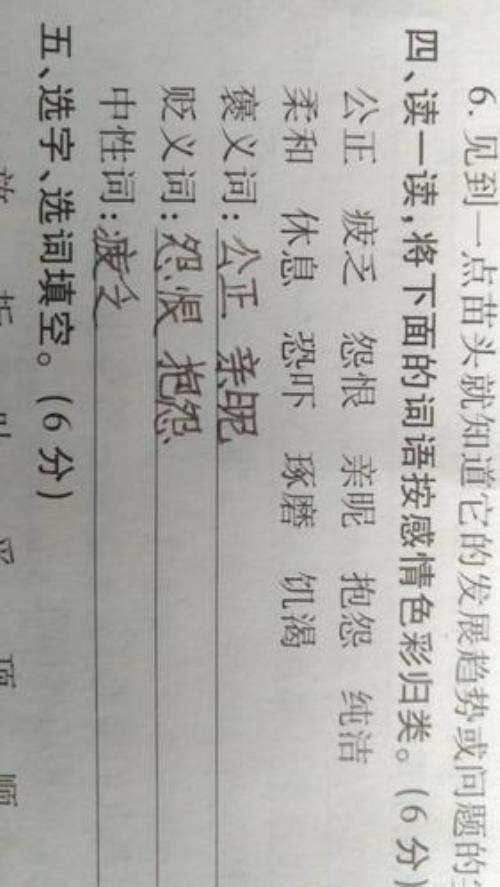 6. 见到一点苗头就知道它的发展趋势或问题的
四、读一读,将下面的词语按感情色彩归类。(6分)
公正 疲乏 怨恨 亲昵 抱怨 纯洁
柔和 休息 恐吓 琢磨 饥渴
褒义词:公正 亲昵
贬义词:怨恨 抱怨
中性词:疲乏
五、选字、选词填空。(6分)